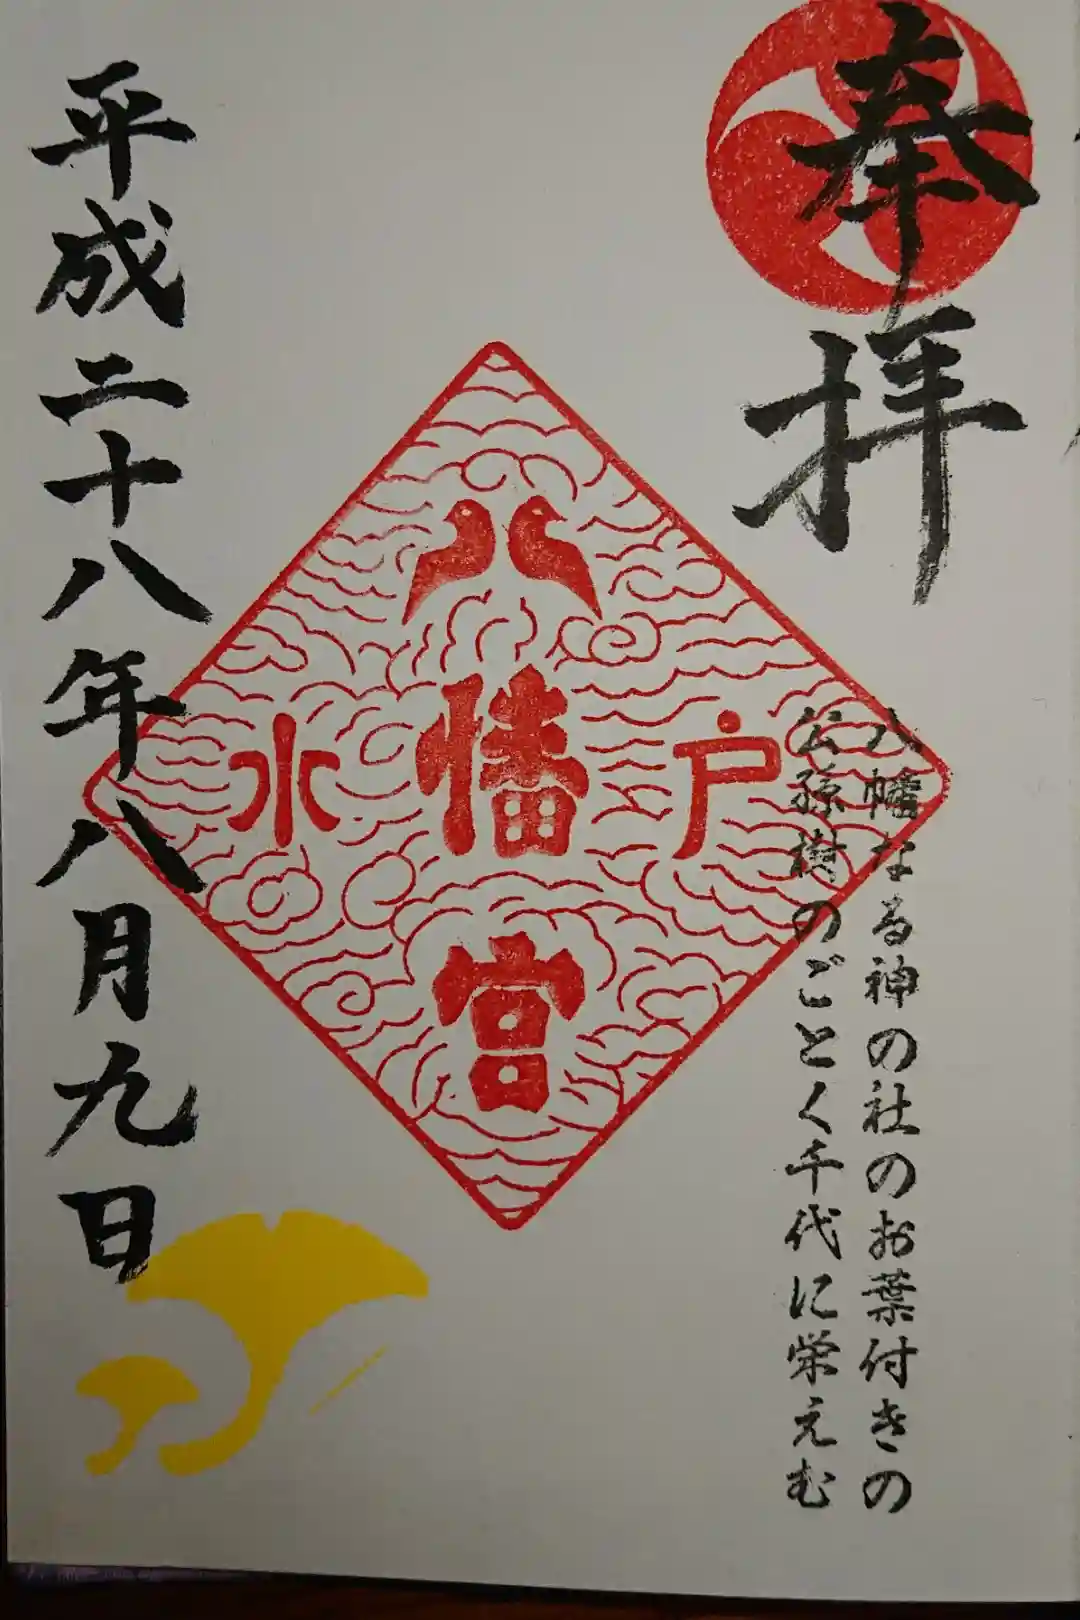 奉拝
八幡なる神の社のお葉付きの
公孫樹のごとく千代に栄えむ
水戸
幡
宮
平成二十八年八月九日